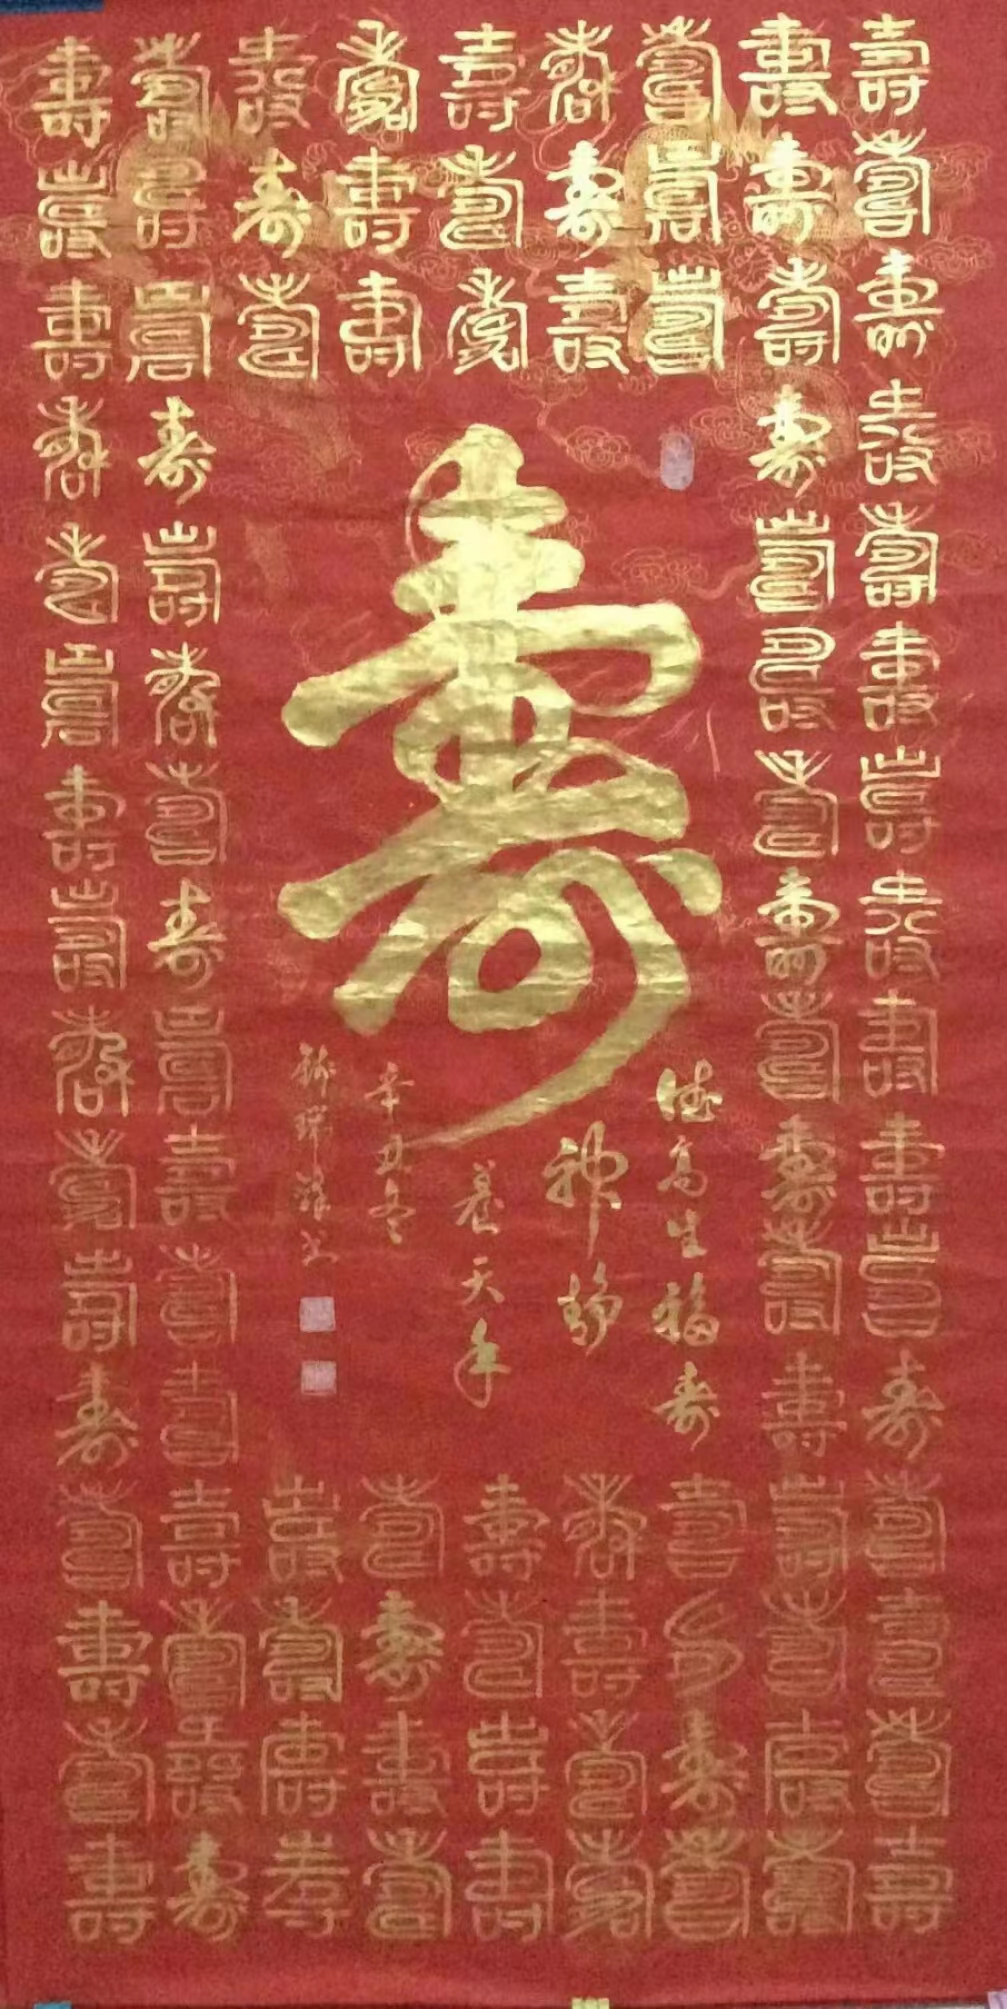 壽壽壽壽壽壽壽壽壽壽壽壽壽壽壽壽
壽壽壽壽壽壽壽壽壽壽壽壽壽壽壽壽
壽壽壽
壽壽壽
壽壽壽
壽壽壽
壽壽壽
壽
德高生福寿
神静
養天年
辛丑冬
瑞祥书
壽壽壽壽
壽壽壽壽
壽壽壽壽
壽壽壽壽
壽壽壽壽
壽壽壽壽壽壽壽壽壽壽壽壽壽壽壽壽
壽壽壽壽壽壽壽壽壽壽壽壽壽壽壽壽